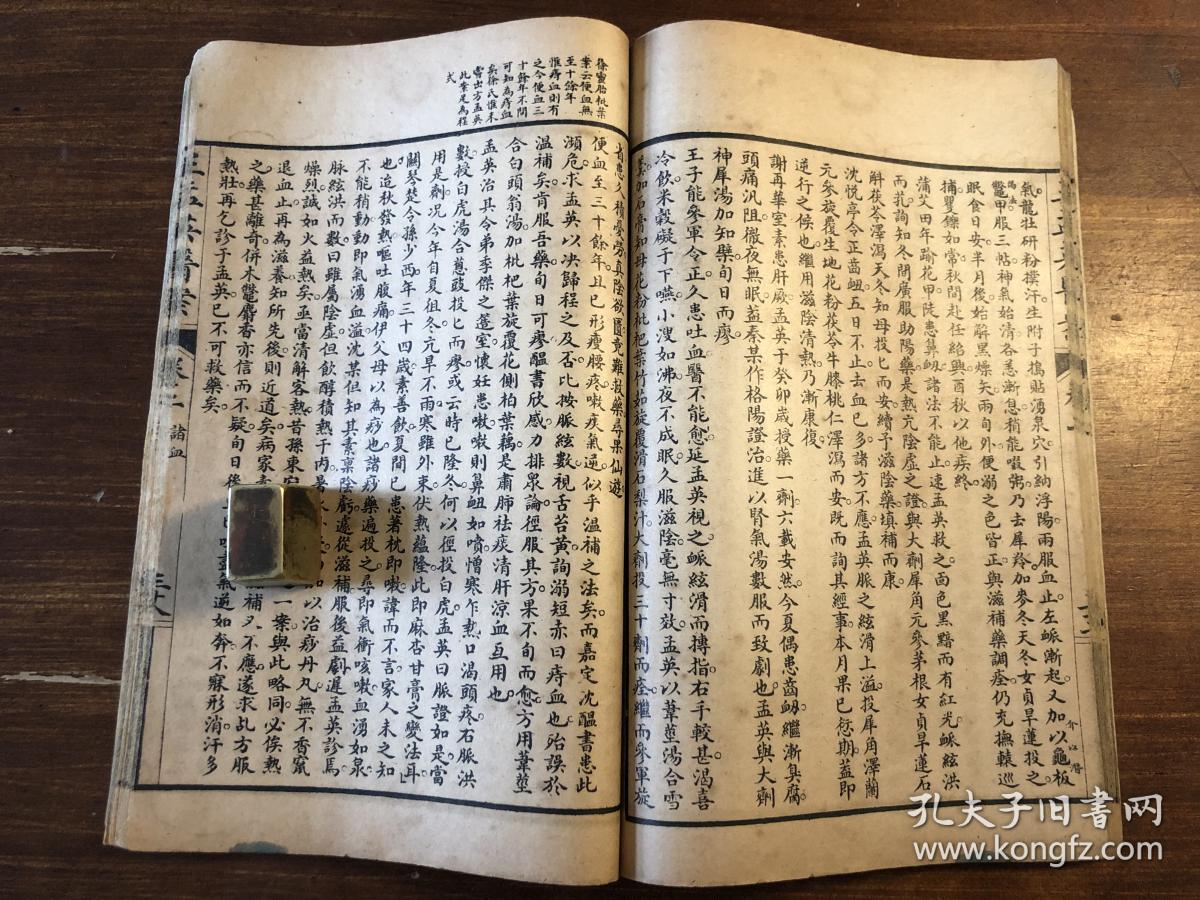 氣龍牡研粉撲汗生附子搗貼湧泉穴引納浮陽兩服血止左脈漸起又加以龜板
介以潛陽法
鼈甲服三帖神氣始清各恙漸息稍能啜粥乃去犀羚加麥冬天冬女貞旱蓮投之
眠食日安半月後始解黑燥矢兩旬外便溺之色皆正與滋補藥調痊仍充撫轅巡
捕矍鑠如常秋間赴任紹興酉秋以他疾終
蒲艾田年踰花甲陡患鼻衂諸法不能止速孟英救之面色黑黯而有紅光脈絃洪
而乳詢知冬間廣服助陽藥是熱亢陰虛之證與大劑犀角元參茅根女貞旱蓮石
斛茯苓澤瀉天冬知母投匕而安續予滋陰藥填補而康
沈悅亭令正齒衂五日不止去血已多諸方不應孟英脈之絃滑上溢投犀角澤蘭
元參旋覆生地花粉茯苓牛膝桃仁澤瀉而安既而詢其經事本月果已愆期蓋即
逆行之候也繼用滋陰清熱乃漸康復
謝再華室素患肝厥孟英于癸卯歲授藥一劑六載安然今夏偶患齒衂繼漸臭腐
頭痛汎阻徹夜無眠蓋秦某作格陽證治進以腎氣湯數服而致劇也孟英與大劑
神犀湯加知檗旬日而瘳
王子能參軍令正久患吐血醫不能愈延孟英視之脈絃滑而摶指右手較甚渴喜
冷飲米穀礙于下嚥小溲如沸夜不成眠久服滋陰毫無寸效孟英以葦莖湯合雪
羹加石膏知母花粉枇杷葉竹茹旋覆滑石梨汁大劑投三十劑而痊繼而參軍旋
省患久積憂勞真陰欲匱竟難救藥尋果仙遊
便血至三十餘年且已形瘦腰疼嗽痰氣逆似乎溫補之法矣而嘉定沈醖書患此
瀕危求孟英以決歸程之及否比按脈絃數視舌苔黃詢溺短赤曰痔血也殆誤於
溫補矣肯服吾藥旬日可瘳醖書欣感力排衆論徑服其方果不旬而愈方用葦莖
合白頭翁湯加枇杷葉旋覆花側柏葉藕是肅肺祛痰清肝涼血互用也
孟英治其令弟季傑之簉室懷妊患嗽嗽則鼻衂如噴憎寒乍熱口渴頭疼右脈洪
數授白虎湯合葱豉投匕而瘳或云時已隆冬何以徑投白虎孟英曰脈證如是當
用是劑況今年自夏徂冬亢旱不雨寒雖外束伏熱蘊隆此即麻杏甘膏之變法耳
關琴楚令孫少西年三十四歲素善飲夏間已患著枕即嗽諱而不言家人未之知
也迨秋發熱嘔吐腹痛伊父母以為痧也諸痧藥遍投之尋即氣衝咳嗽血湧如泉
不能稍動動即氣湧血溢沈某但知其素稟陰虧遽從滋補服後益劇遲孟英診焉
脈絃洪而數曰雖屬陰虛但飲醇積熱于內暑
燥烈誠如火益熱矣亟當清解客熱昔孫東宿 以治痧丹丸無不香竄
退血止再為滋養知所先後則近道矣病家 一案與此略同必俟熱
之藥甚離奇併木鼈麝香亦信而不疑旬日後 補又不應遂求乩方服
熱壯再乞診于孟英已不可救藥矣 氣逆如奔不寐形消汗多
徐靈胎批葉
案云便血無
至十餘年
惟痔血則有
之今便血三
十餘年不問
可知為痔血
矣徐氏惟未
嘗出方孟英
此案足為程
式
王孟英醫案
卷二 諸血
孔夫子旧书网
www.kongfz.com